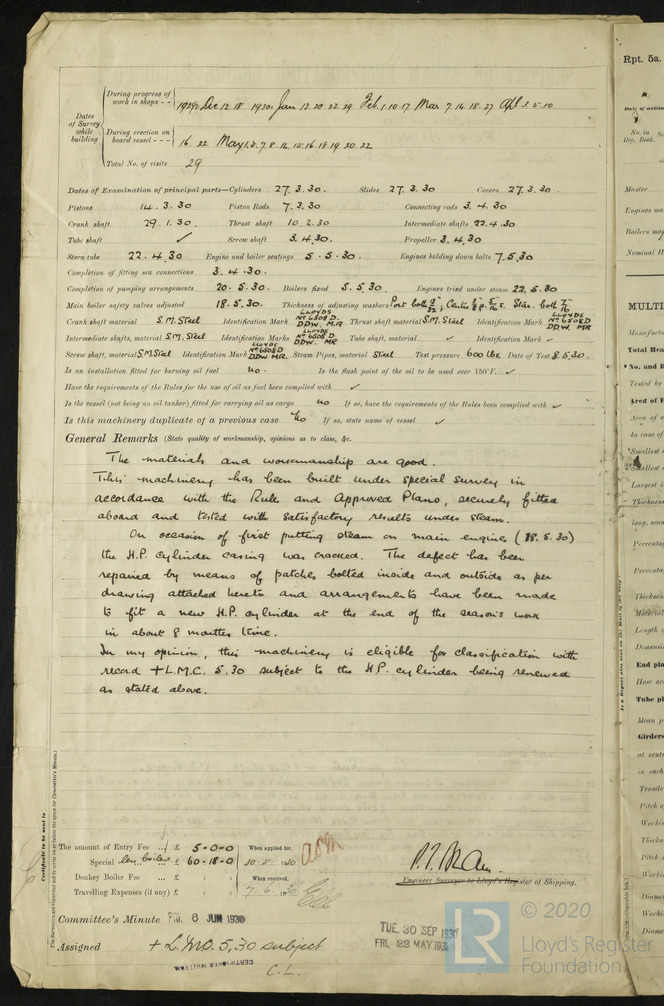 During progress of work in shops - - 1929: Dec 12. 18. 1930: Jan 13. 20. 22. 29 Feb. 1. 10. 17 Mar 7. 14. 18. 27 Apl 3. 5. 10
Dates of Survey while building
During erection on board vessel - - - 16. 22 May 1. 5. 7. 8. 14. 15. 16. 18. 19. 20. 22
Total No. of visits 29
Dates of Examination of principal parts—Cylinders 27. 3. 30. Slides 27. 3. 30 Covers 27. 3. 30.
Pistons 14. 3. 30 Piston Rods 7. 3. 30 Connecting rods 3. 4. 30
Crank shaft 29. 1. 30. Thrust shaft 10 2. 30 Intermediate shafts 22. 4. 30
Tube shaft ✓ Screw shaft 3. 4. 30. Propeller 3. 4. 30
Stern tube 22. 4. 30 Engine and boiler seatings 5 . 5 . 30. Engines holding down bolts 7. 5. 30
Completion of fitting sea connections 3. 4. 30.
Completion of pumping arrangements 20. 5. 30. Boilers fixed 5. 5. 30. Engines tried under steam 22. 5. 30
Main boiler safety valves adjusted 18. 5. 30. Thickness of adjusting washers Port both
Crank shaft material S.M. Steel Identification Mark LLOYDS No 6508 D. DDW. MR Thrust shaft material S.M. Steel Identification Mark LLOYDS No 6508 D DDW MR
Intermediate shafts, material S.M. Steel Identification Marks LLOYDS No 6508 D. DDW. MR. Tube shaft, material ✓ Identification Mark ✓
Screw shaft, material S.M Steel Identification Mark LLOYDS No 6508 D DDW MR. Steam Pipes, material Steel Test pressure 600 lbs Date of Test 8. 5. 30.
Is an installation fitted for burning oil fuel no. Is the flash point of the oil to be used over 150°F. ✓
Have the requirements of the Rules for the use of oil as fuel been complied with ✓
Is the vessel (not being an oil tanker) fitted for carrying oil as cargo no If so, have the requirements of the Rules been complied with ✓
Is this machinery duplicate of a previous case No If so, state name of vessel ✓
General Remarks (State quality of workmanship, opinions as to class, &c.
The materials and workmanship are good.
This machinery has been built under special survey in
accordance with the Rules and Approved Plans, securely fitted
aboard and tested with satisfactory results under steam.
On occasion of first putting steam on main engine (18. 5. 30)
the H.P. cylinder casing was cracked. The defect has been
repaired by means of patches bolted inside and outside as per
drawing attached hereto and arrangements have been made
to fit a new H.P. cylinder at the end of the seasons work
in about 8 months time.
In my opinion, this machinery is eligible for classification with
record + L.M.C. 5. 30 subject to the H.P. cylinder being renewed
as stated above.
Certificate to be sent to
The amount of Entry Fee ... £ 5-0-0 When applied for,
Special £ 60-18-0 10-5-1930
Donkey Boiler Fee £ : : When received,
Travelling Expenses (if any) £ : : 7. 6. 1930
Engineer Surveyor to Lloyd's Register of Shipping.
Committee's Minute FRI. 6 JUN 1930
TUE. 30 SEP 1930
FRI. 23 MAY 1930
Assigned + L.M.C. 5. 30 subject
CERTIFICATE WRITTEN.
C.L.
© 2020
LR
Lloyd's Register
Foundation
Rpt. 5a.
No. in
Reg. Book.
Master
Engines ma
Boilers ma
Nominal H
MULTI
Manufactu
Total Hea
No. and D
Tested by
Area of
In case of
Smallest
Largest i
Thickness
long. sea
Percenta
Percenta
Thickne
Material
Length
Dimensi
End pla
How are
Tube pl
Mean p
Girders
at cent
in each
Tensile
Pitch o
Worki
Thickn
Pitch
Worki
Diame
Worki
Diame